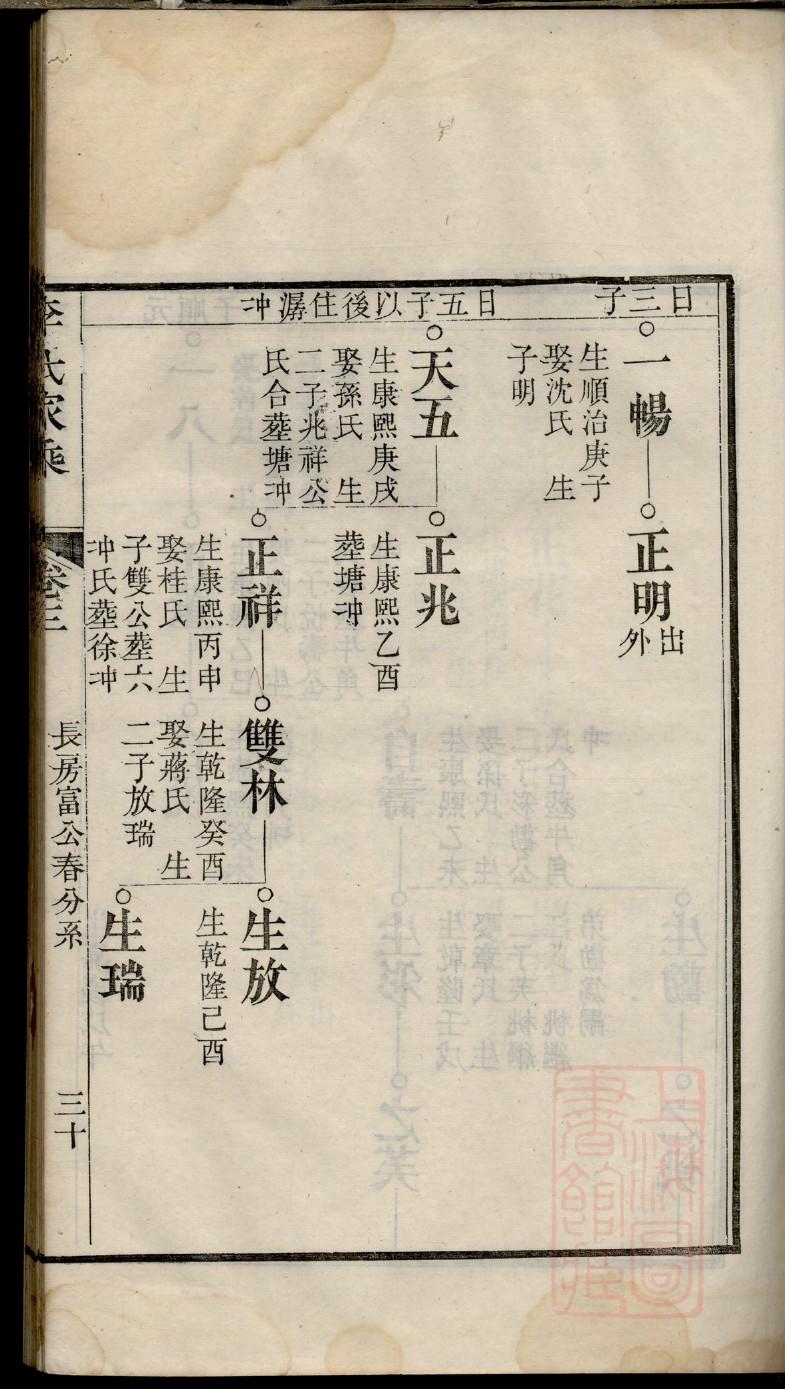 日三子
一暢
生順治庚子
娶沈氏　生
子明
正明
出
外
日五子以後住潺冲
天五
生康熙庚戌
娶孫氏　生
二子兆祥公
氏合塟塘冲
正兆
生康熙乙酉
塟塘冲
正祥
生康熙丙申
娶桂氏　生
子雙公塟六
冲氏塟徐冲
雙林
生乾隆癸酉
娶蔣氏　生
二子放瑞
生放
生乾隆己酉
生瑞
李氏家乘
卷三
長房富公春分系
三十
上海圖書館藏